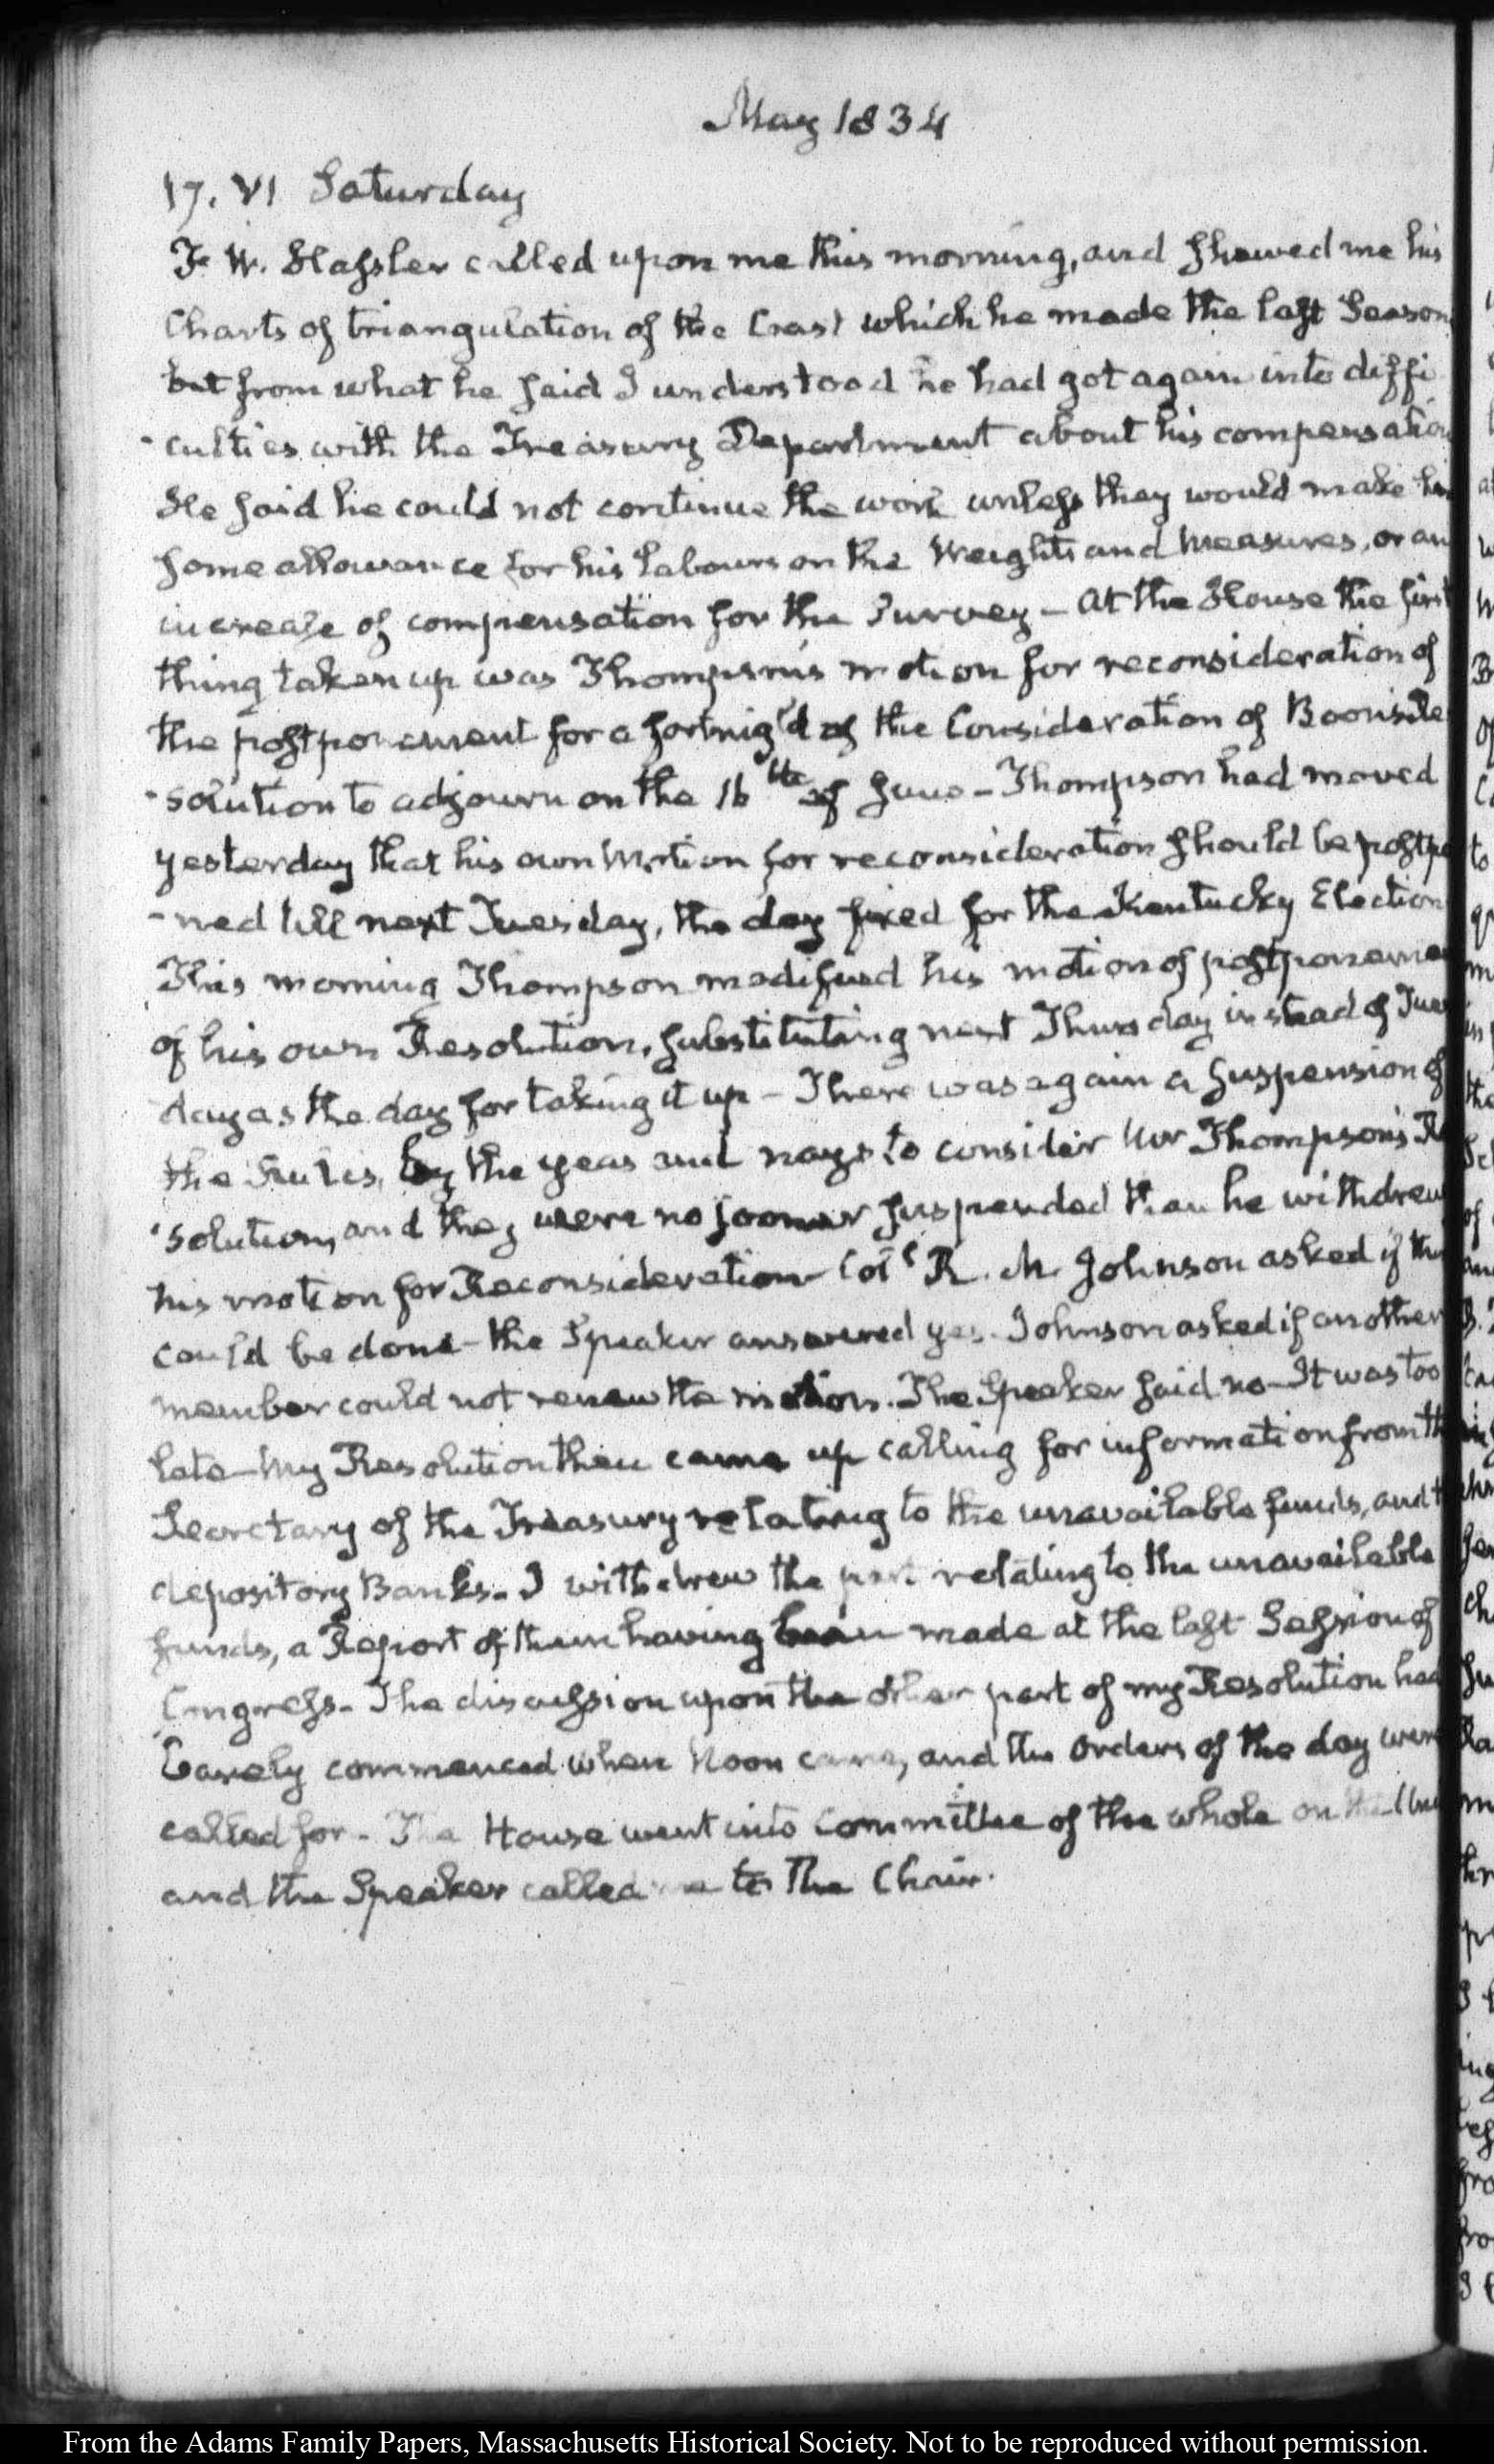 May 1834
17. VI Saturday
F. W. Hassler called upon me this morning, and shewed me his
Charts of triangulation of the Coast which he made the last Season
but from what he said I understood he had got again into diffi
-culties with the Treasury Department about his compensation
He said he could not continue the work unless they would make him
some allowance for his labours on the Weights and Measures, or an
increase of compensation for the Survey — At the House the first
thing taken up was Thompson's motion for reconsideration of
the postponement for a fortnight of the Consideration of Boon's Re
-solution to adjourn on the 16th of June — Thompson had moved
yesterday that his own Motion for reconsideration should be postpo
-ned till next Tuesday, the day fixed for the Kentucky Election
This morning Thompson modified his motion of postponement
of his own Resolution, substituting next Thursday instead of Tues
day as the day for taking it up — There was again a suspension of
the Rules, by the yeas and nays to consider Mr Thompson's Re
-solution, and they were no sooner suspended than he withdrew
his motion for Reconsideration — Col. R. M. Johnson asked if this
could be done — the Speaker answered yes. Johnson asked if another
member could not renew the motion. The Speaker said no — It was too
late — My Resolution then came up calling for information from the
Secretary of the Treasury relating to the unavailable funds, and the
depository Banks — I withdrew the part relating to the unavailable
funds, a Report of them having been made at the last Session of
Congress — The discussion upon the other part of my Resolution had
barely commenced when Noon came, and the Orders of the day were
called for — The House went into Committee of the whole on the
and the Speaker called me to the Chair.
From the Adams Family Papers, Massachusetts Historical Society. Not to be reproduced without permission.